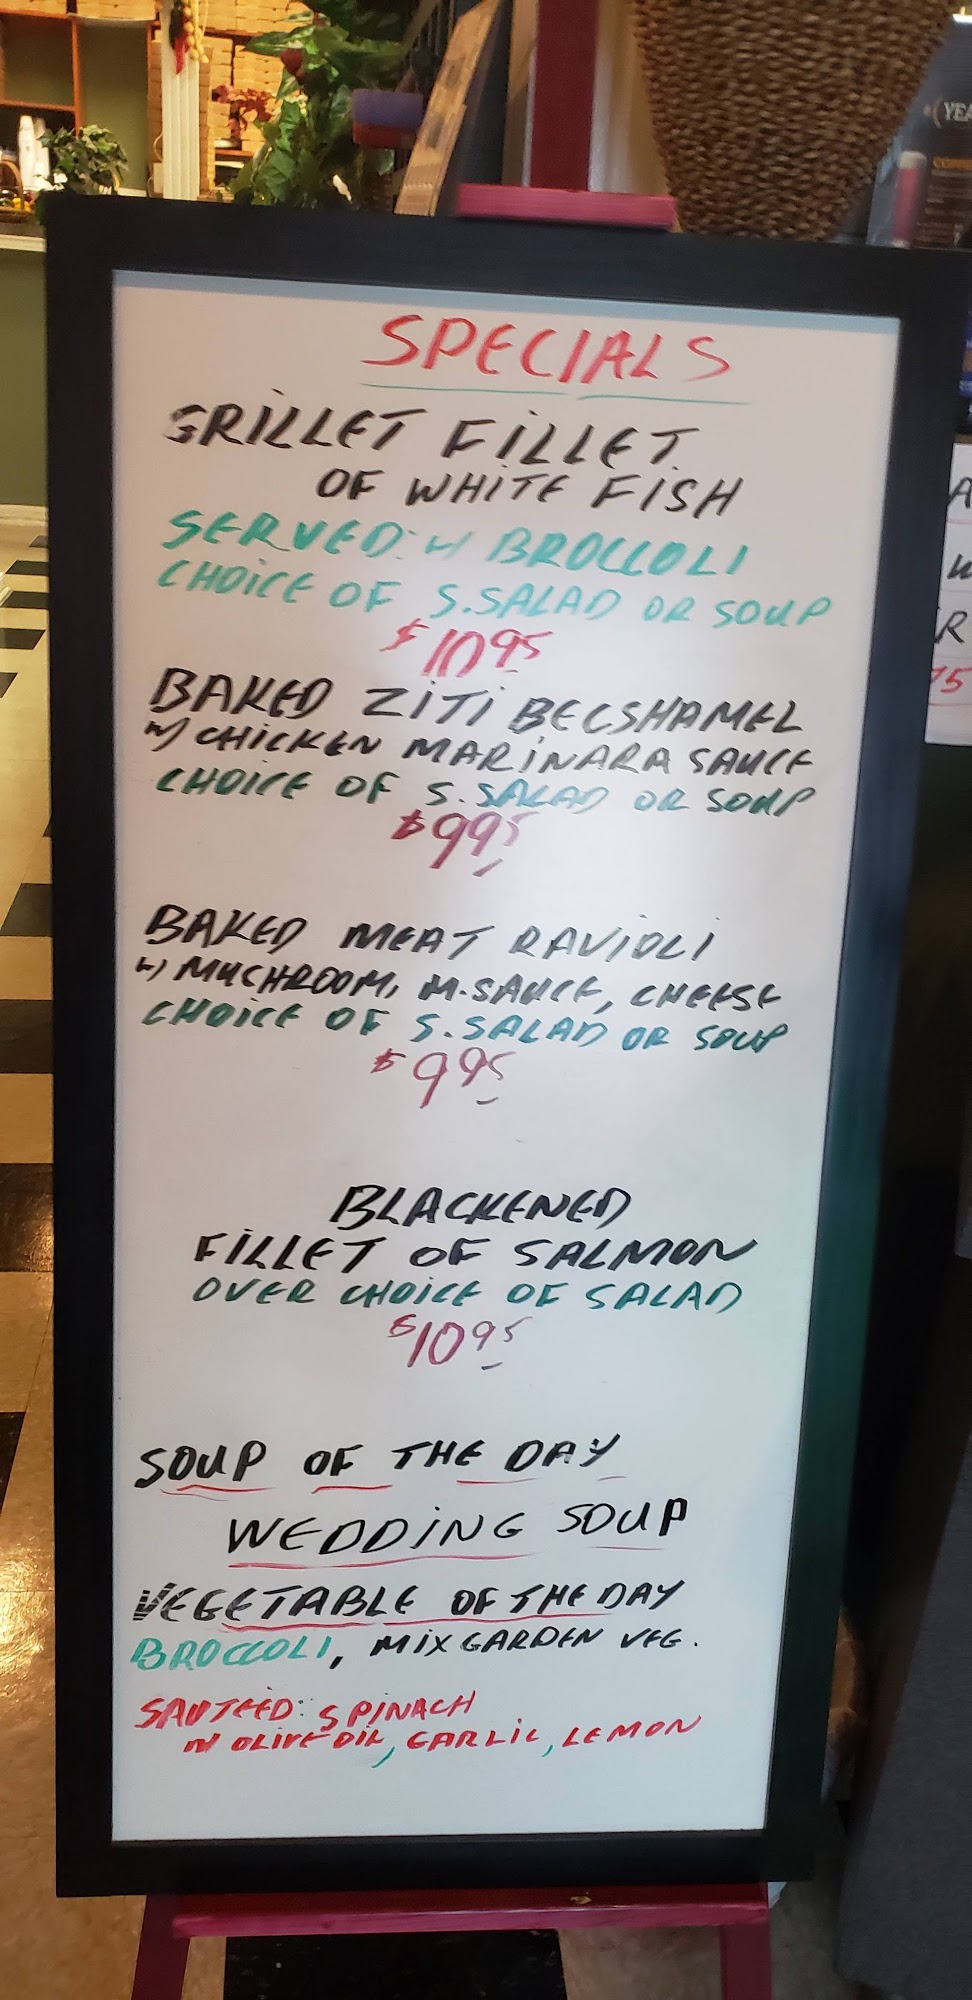 SPECIALS
GRILLET FILLET
OF WHITE FISH
SERVED: W/ BROCCOLI
CHOICE OF S.SALAD OR SOUP
$10 95
BAKED ZITI BECSHAMEL
W/ CHICKEN MARINARA SAUCE
CHOICE OF S.SALAD OR SOUP
$9 95
BAKED MEAT RAVIOLI
W/ MUCHROOM, M.SAUCE, CHEESE
CHOICE OF S.SALAD OR SOUP
$9 95
BLACKENED
FILLET OF SALMON
OVER CHOICE OF SALAD
$10 95
SOUP OF THE DAY
WEDDING SOUP
VEGETABLE OF THE DAY
BROCCOLI, MIX GARDEN VEG.
SAUTEED: SPINACH
W/ OLIVE OIL, GARLIC, LEMON